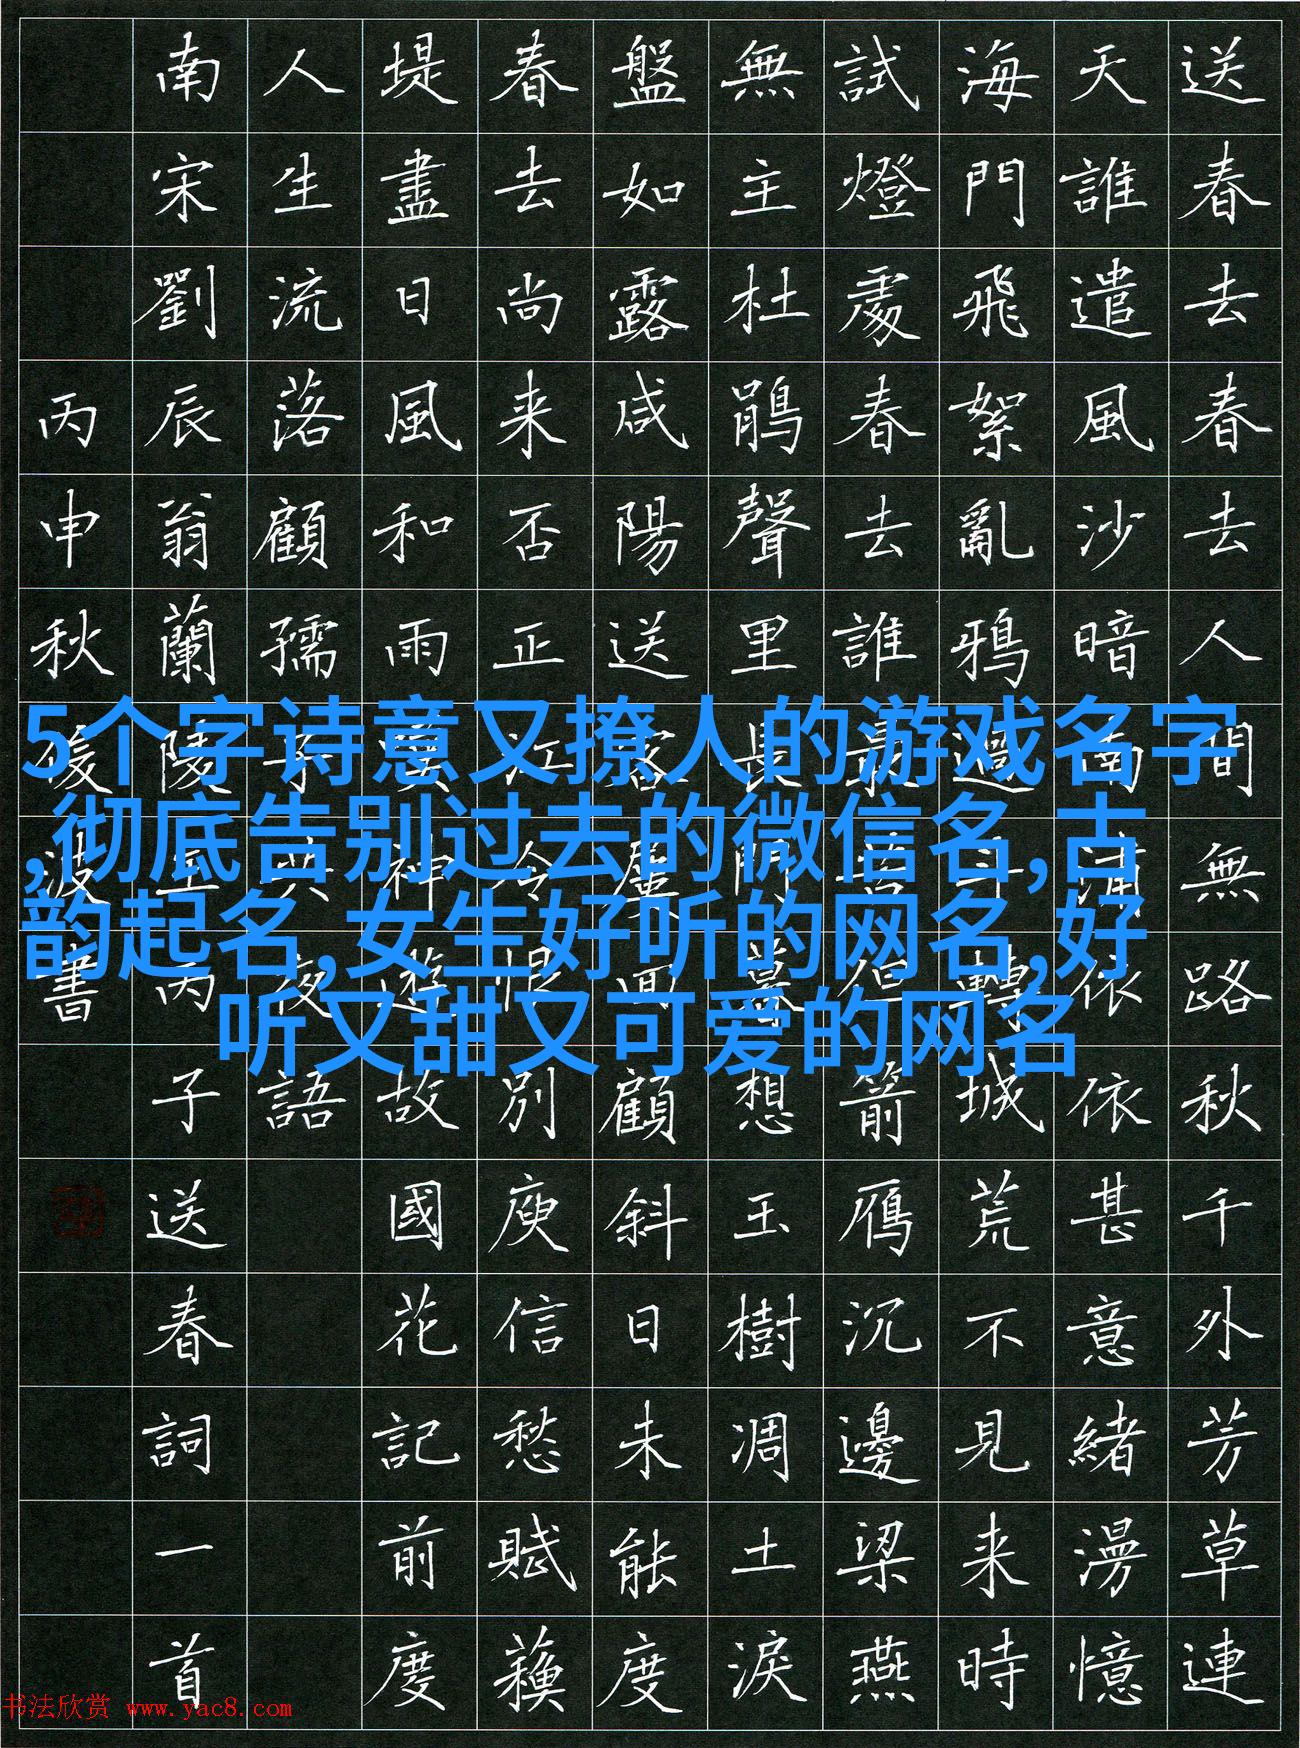 送春去春去人間無路秋千外芳草連
天誰遣風沙暗南浦依依甚意緒漫憶
海門飛絮亂鴉過斗轉城荒不見来時
試燈處春去誰最苦但箭雁沉邊梁燕
無主杜鵑聲里長門暮想玉樹凋土淚
盤如露咸陽送客屢回顧斜日未能度
春去尚来否正江令恨別庾信愁賦蘓
堤盡日風和雨嘆神遊故國花記前度
人生流落顧孺子共夜語
南宋劉辰翁蘭陵王丙子送春詞一首
丙申秋波書
5个字诗意又撩人的游戏名字
,彻底告别过去的微信名,古
韵起名,女生好听的网名,好
听又甜又可爱的网名
书法欣赏 www.yac8.com